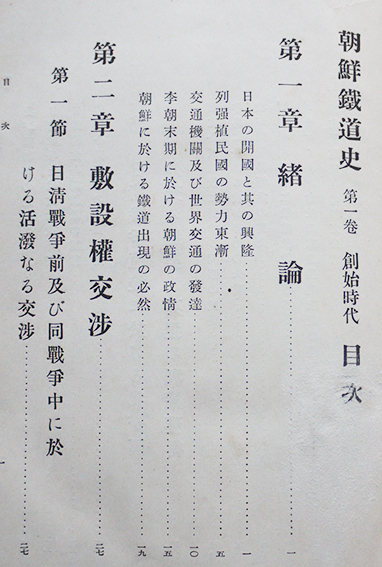 朝鮮鐵道史 第一卷 創始時代 目次
第一章 緒論……一
日本の開國と其の興隆……一
列强植民國の勢力東漸……五
交通機關及び世界交通の發達……一〇
李朝末期に於ける朝鮮の政情……一五
朝鮮に於ける鐵道出現の必然……一九
第二章 敷設權交涉……二七
第一節 日淸戰爭前及び同戰爭中に於
ける活潑なる交涉……二七
目次
一